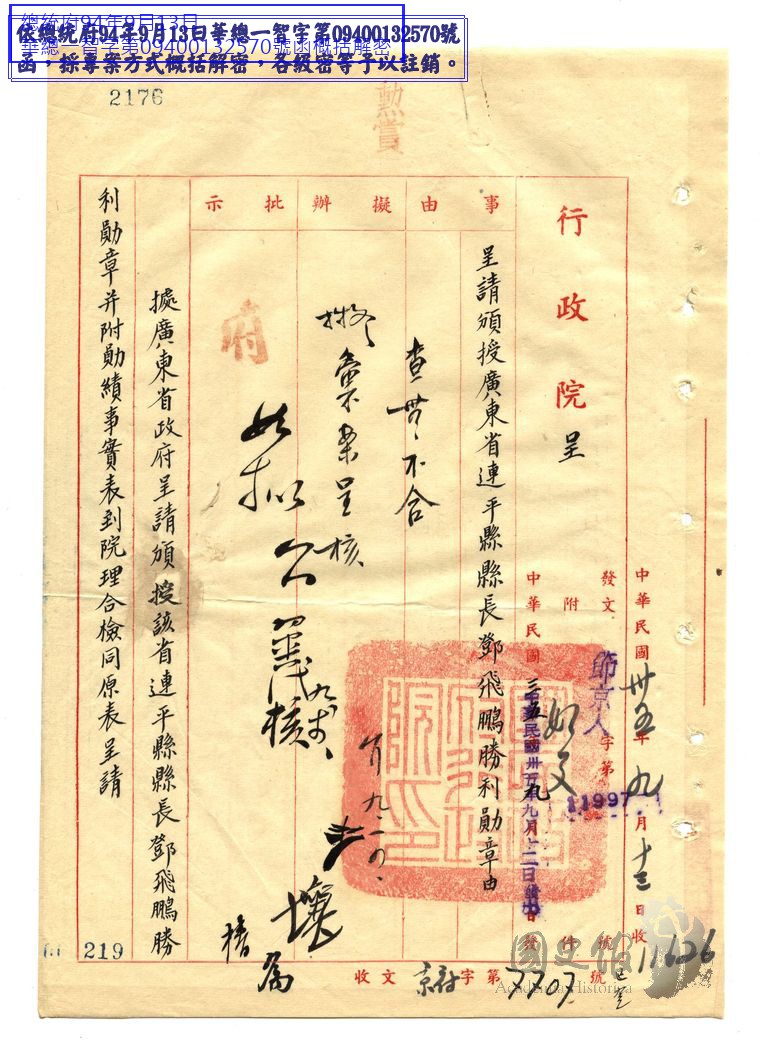 總統府94年9月13日
華總一智字第09400132570號函概括解密
依總統府94年9月13日華總一智字第09400132570號
函，採專案方式概括解密，各級密等予以註銷。
2176
勳賞
中華民國卅五年九月十三日收
11626
發文 節京人字第11997號
附 如文 件
中華民國三五年九月
中華民國卅五年九月十二日
行政院呈
事由擬辦批示
呈請頒授廣東省連平縣縣長鄧飛鵬勝利勛章由
查無不合
擬彙案呈核
府
如擬
核
九、一四、
據廣東省政府呈請頒授該省連平縣縣長鄧飛鵬勝
利勛章并附勛績事實表到院理合檢同原表呈請
收文京府字第7707號
219
國史館
Academia Historica